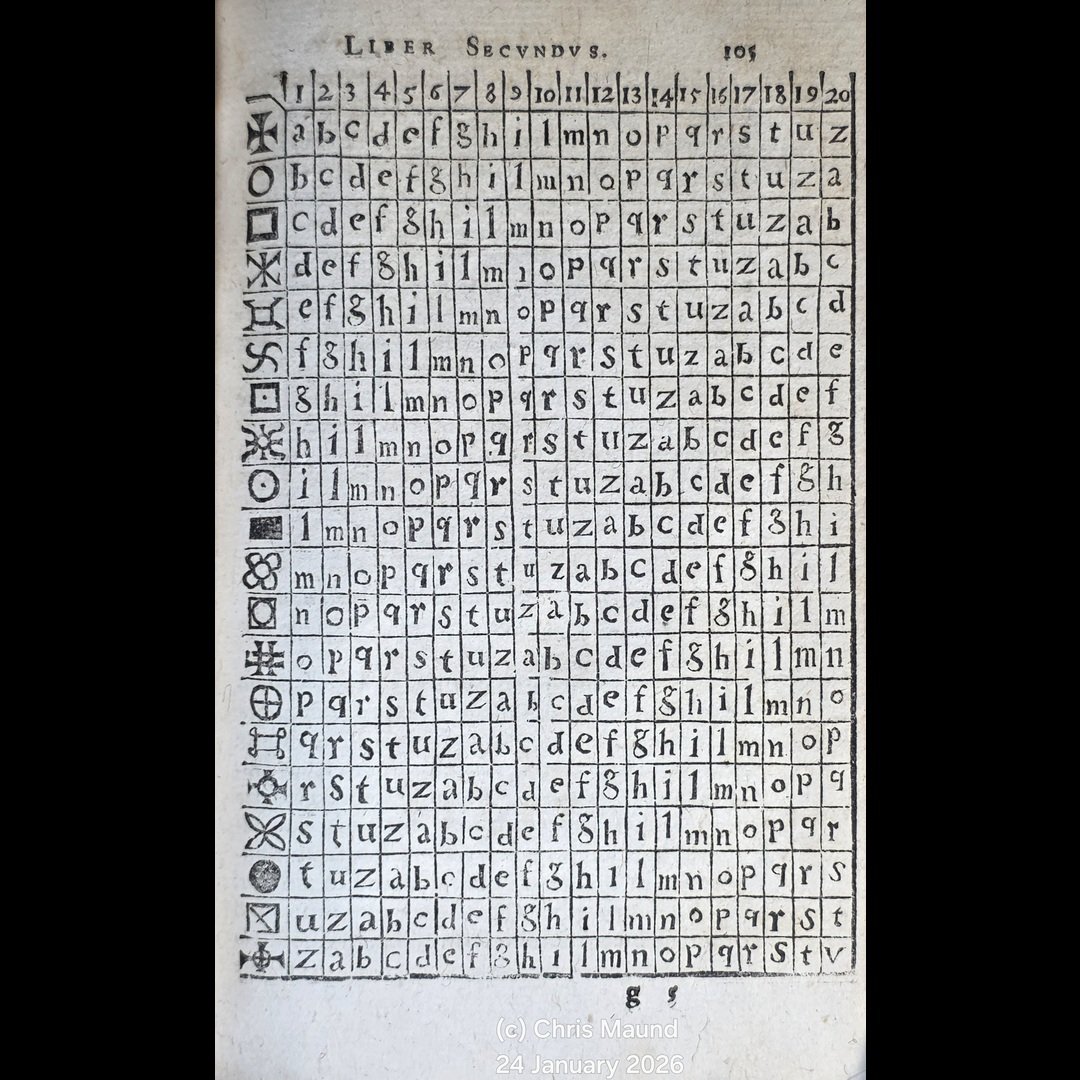 LIBER SECVNDVS. 105
1 2 3 4 5 6 7 8 9 10 11 12 13 14 15 16 17 18 19 20
a b c d e f g h i l m n o p q r s t u z
b c d e f g h i l m n o p q r s t u z a
c d e f g h i l m n o p q r s t u z a b
d e f g h i l m n o p q r s t u z a b c
e f g h i l m n o p q r s t u z a b c d
f g h i l m n o p q r s t u z a b c d e
g h i l m n o p q r s t u z a b c d e f
h i l m n o p q r s t u z a b c d e f g
i l m n o p q r s t u z a b c d e f g h
l m n o p q r s t u z a b c d e f g h i
m n o p q r s t u z a b c d e f g h i l
n o p q r s t u z a b c d e f g h i l m
o p q r s t u z a b c d e f g h i l m n
p q r s t u z a b c d e f g h i l m n o
q r s t u z a b c d e f g h i l m n o p
r s t u z a b c d e f g h i l m n o p q
s t u z a b c d e f g h i l m n o p q r
t u z a b c d e f g h i l m n o p q r s
u z a b c d e f g h i l m n o p q r s t
z a b c d e f g h i l m n o p q r s t v
g 5
(c) Chris Maund
24 January 2026